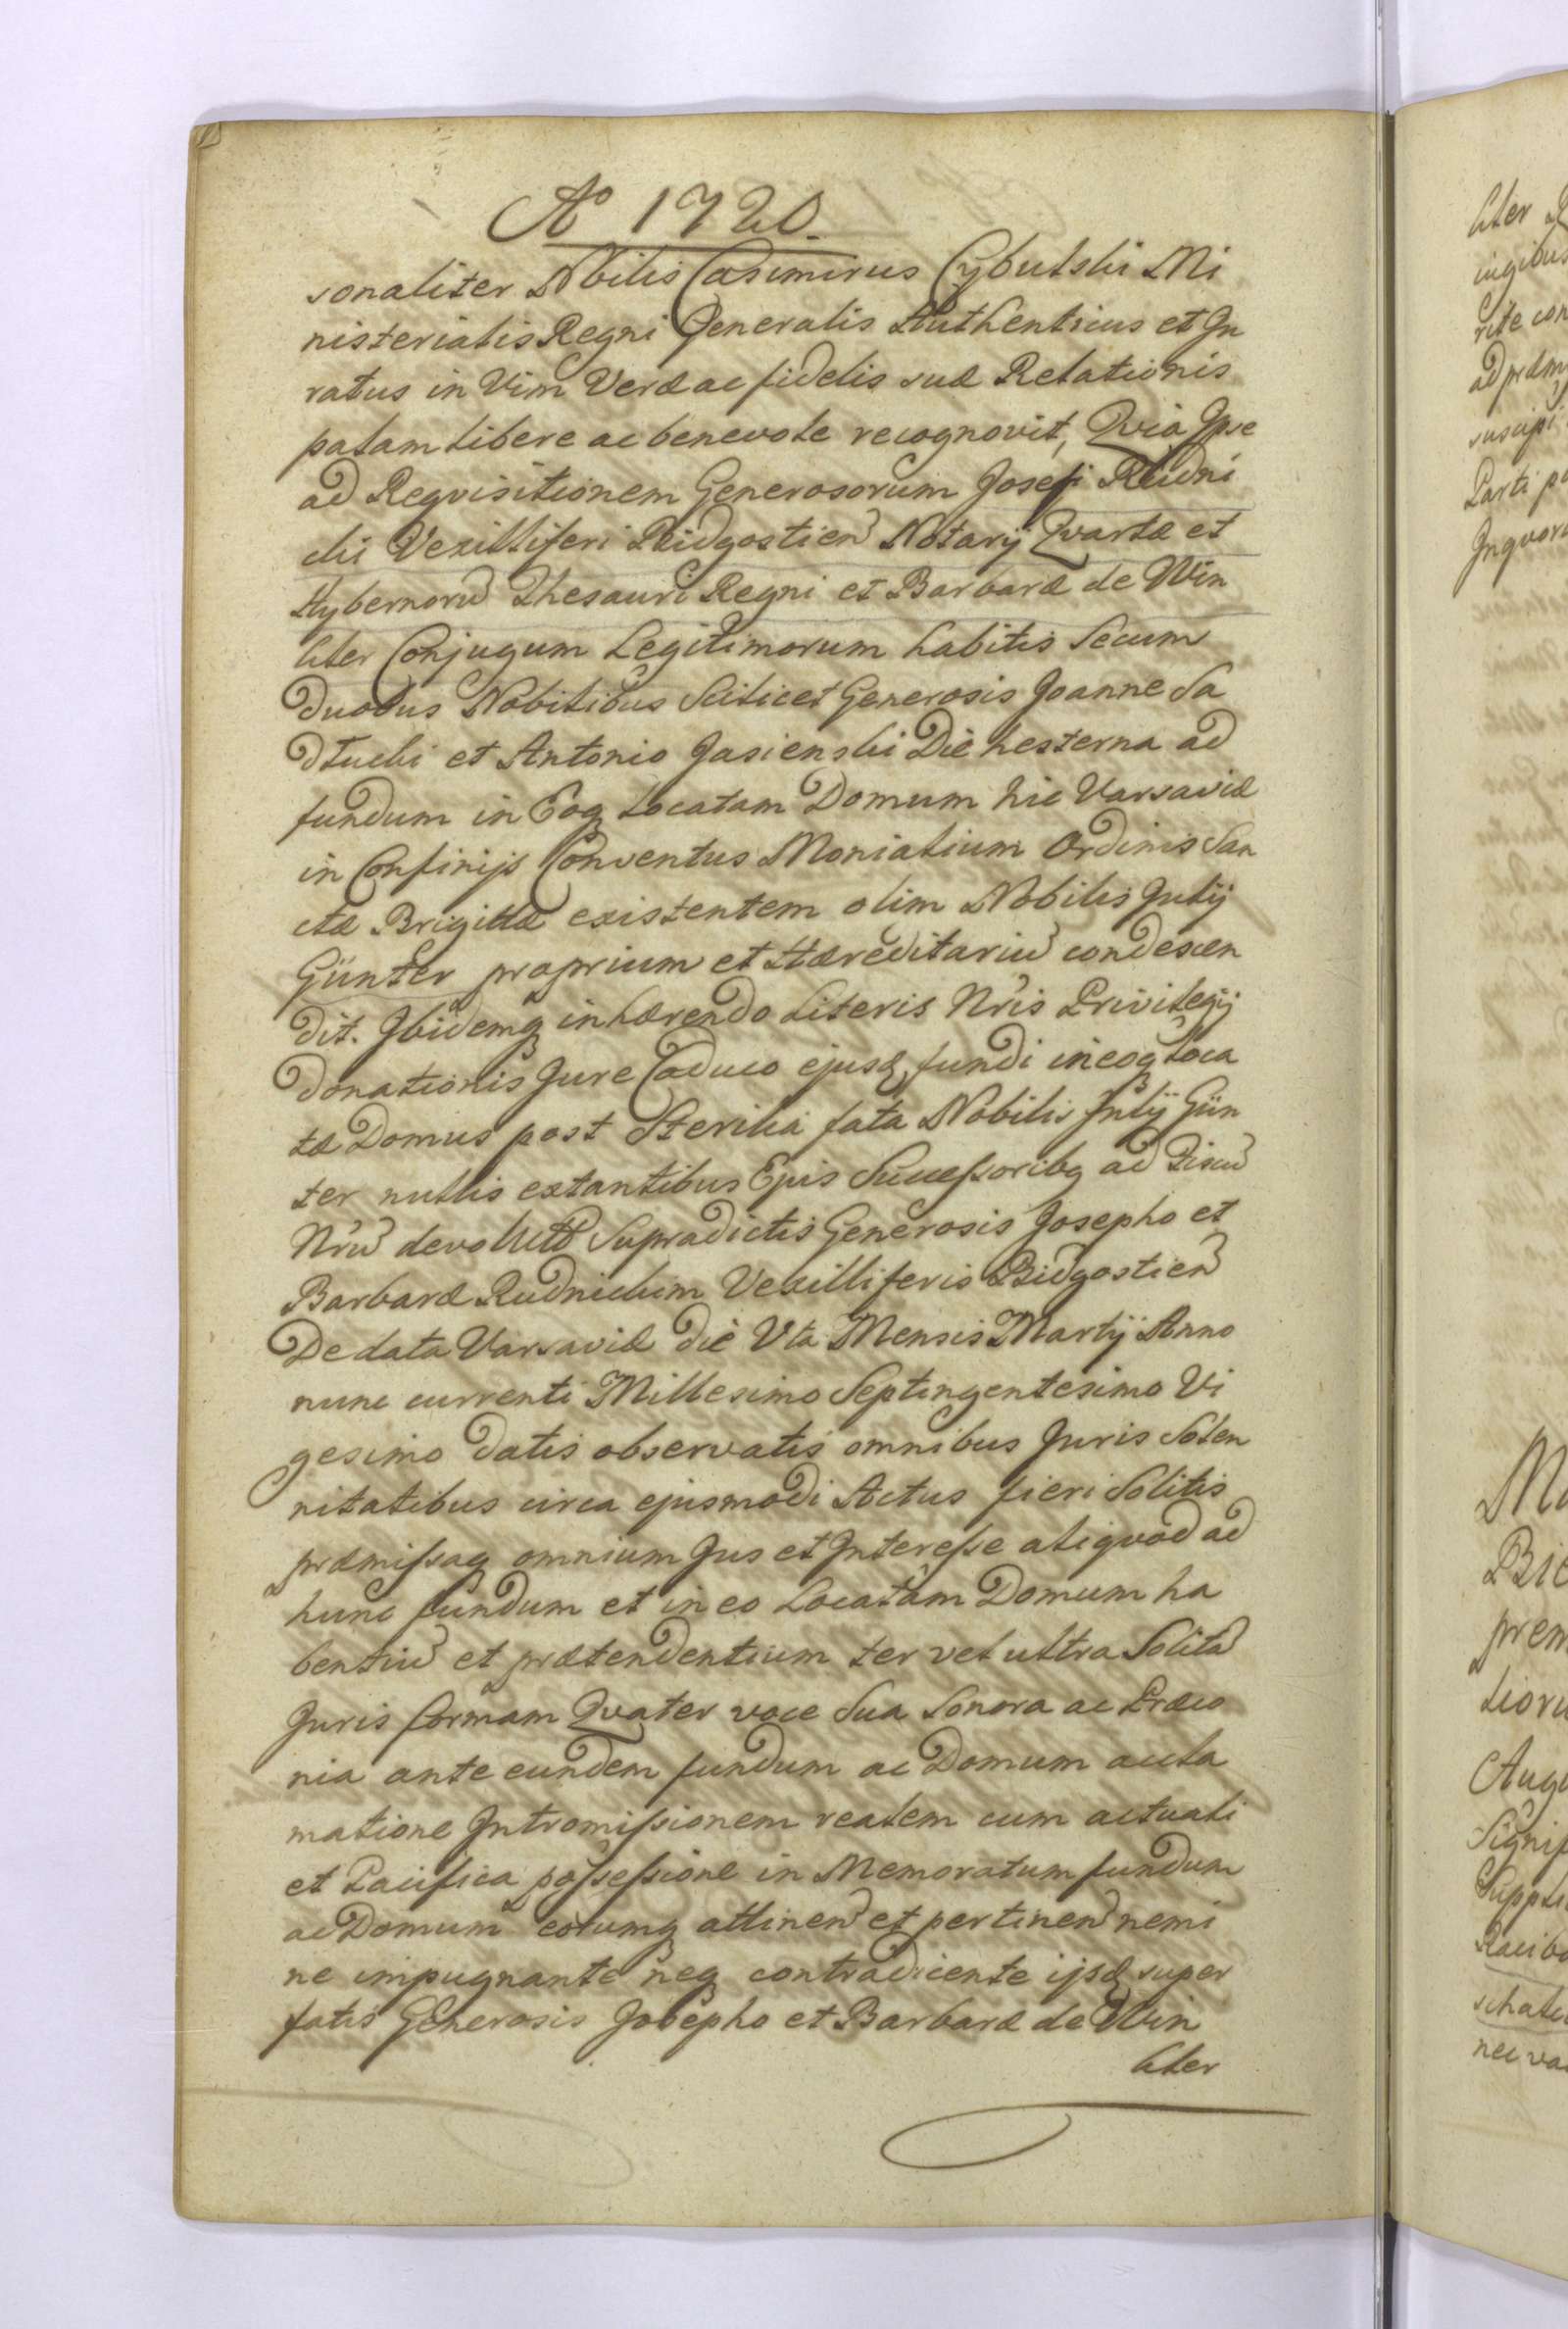 Aº 1720.
sonaliter Nobilis Casimirus Cybulski Mi
nisterialis Regni Generalis Authenticus et Ju
ratus in Vim Veræ ac fidelis suæ Relationis
palam libere ac benevole recognovit, Qvia Ipse
ad Reqvisitionem Generosorum Josefi Rudni
cki Vexilliferi Bidgostien Notarij Qvartæ et
Hybernoru Thesauri Regni et Barbaræ de Win
kler Conjugum Legitimorum habitis Secum
duobus Nobilibus Scilicet Generosis Joanne Sa
dłucki et Antonio Jasienski Die hesterna ad
fundum in Eoq Locatam Domum hic Varsaviæ
in Confinijs Conventus Monialium Ordinis San
ctæ Brigittæ existentem olim Nobilis Julij
Günter proprium et Hæreditariu condescen
dit. Ibidemq inhærendo Literis Nr̃is Privilegij
Donationis Jure Caduco ejusd fundi in eoq loca
tæ Domus post Sterilia fata Nobilis Julij Gün
ter nullis extantibus Ejus Successoribq ad Fiscu
Nr̃u devolutæ Supradictis Generosis Josepho et
Barbaræ Rudnickim Vexilliferis Bidgostien
De data Varsaviæ die Vta Mensis Martij Anno
nunc currenti Millesimo Septingentesimo Vi
gesimo datis observatis omnibus Juris Solen
nitatibus circa ejusmodi Actus fieri Solitis
præmissaq omnium Jus et Interesse aliqvod ad
hunc fundum et in eo Locatam Domum ha
bentiu et prætendentium ter vel ultra Solita
Juris formam Qvater voce Sua Sonora ac Præco
nia ante eundem fundum ac Domum accla
matione Intromissionem realem cum actuali
et Pacifica possessione in Memoratum fundum
ac Domum eorumq attinen et pertinen nemi
ne impugnante neq contradicente ijsd super
fatis Generosis Josepho et Barbaræ de Win
kler